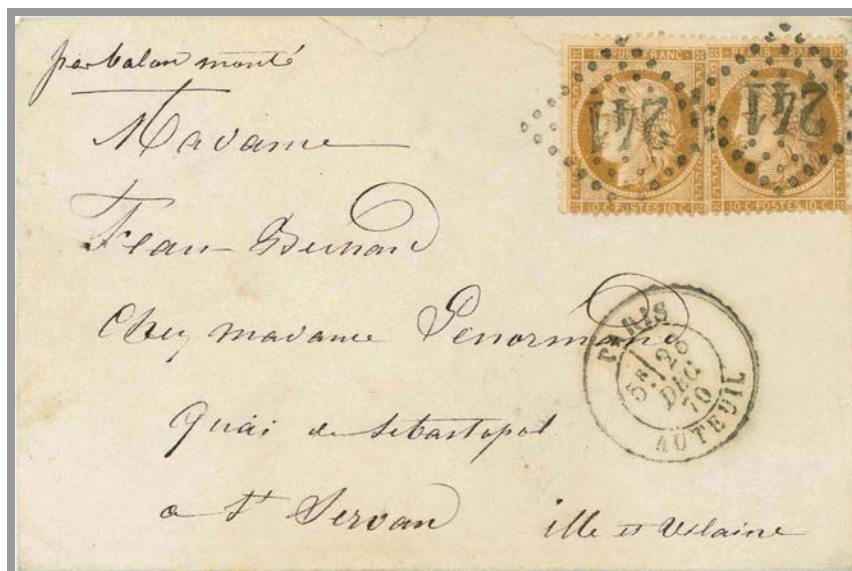 par balon monté
Madame
chez madame
quai de Sebastopol
a St Servan
ille et Vilaine
REPUB FRANC
10 C POSTES 10 C
241
10 C POSTES 10 C
241
PARIS
5E 26
DEC
70
AUTEUIL